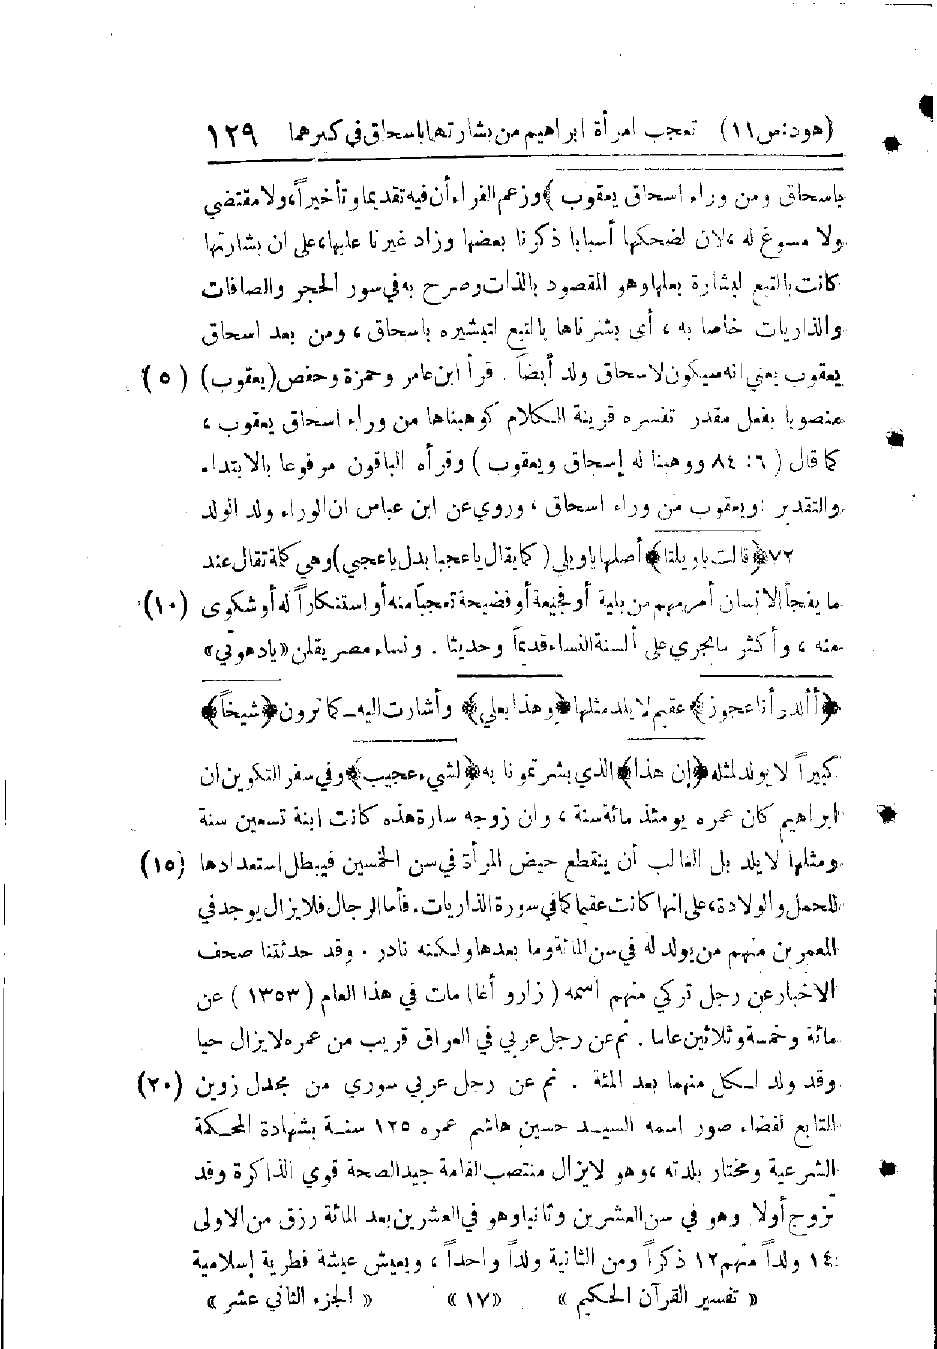 (هود:ص١١) تعجب امرأة ابراهيم من بشارتها باسحاق في كبرهما ١٢٩
باسحاق ومن وراء اسحاق يعقوب ﴾ وزعم الفراء أن فيه تقديما وتأخيراً، ولا مقتضي
ولا مسوغ له ، لان لضحكها أسبابا ذكرنا بعضها وزاد غيرنا عليها، على ان بشارتها
كانت بالتبع لبشارة بعلها وهو المقصود بالذات وصرح به في سور الحجر والصافات
والذاريات خاصا به ، أي بشرناها بالتبع لتبشيره باسحاق ، ومن بعد اسحاق
يعقوب يعني انه سيكون لاسحاق ولد أيضاً . قرأ ابن عامر وحمزة وحفص (يعقوب) (٥)
منصوبا بفعل مقدر تفسره قرينة الكلام كوهبناها من وراء اسحاق يعقوب ،
كما قال ( ٦: ٨٤ ووهبنا له إسحاق ويعقوب ) وقرأه الباقون مرفوعا بالابتداء
والتقدير : ويعقوب من وراء اسحاق ، وروي عن ابن عباس ان الوراء ولد الولد
٧٢﴿ قالت ياويلتا﴾ أصلها ياويلي ( كما يقال ياعجبا بدل ياعجبي) وهي كلمة تقال عند
ما يفجأ الانسان أمر مهم من بلية أو فجيعة أو فضيحة تعجباً منه أو استنكاراً له أو شكوى (١٠)
منه ، وأكثر ما يجري على ألسنة النساء قديماً وحديثا . ونساء مصر يقلن «يادهوتي»
﴿ أألد وأنا عجوز ﴾ عقيم لا يلد مثلها ﴿ وهذا بعلي ﴾ وأشارت اليه ـ كما ترون ﴿ شيخاً ﴾
كبيراً لا يولد لمثله ﴿ إن هذا ﴾ الذي بشرتمونا به ﴿ لشيء عجيب ﴾ وفي سفر التكوين ان
ابراهيم كان عمره يومئذ مائة سنة ، وان زوجه سارة هذه كانت ابنة تسعين سنة
ومثلها لا يلد بل الغالب أن ينقطع حيض المرأة في سن الخمسين فيبطل استعدادها (١٥)
للحمل والولادة، على انها كانت عقيما كما في سورة الذاريات. فأما الرجال فلا يزال يوجد في
المعمرين منهم من يولد له في سن المائة وما بعدها ولكنه نادر . وقد حدثتنا صحف
الاخبار عن رجل تركي منهم اسمه ( زارو أغا) مات في هذا العام ( ١٣٥٣ ) عن
مائة وخمسة وثلاثين عاما . ثم عن رجل عربي في العراق قريب من عمره لا يزال حيا
وقد ولد لكل منهما بعد المئة . ثم عن رجل عربي سوري من مجدل زوين (٢٠)
التابع لقضاء صور اسمه السيد حسين هاشم عمره ١٢٥ سنة بشهادة المحكمة
الشرعية ومختار بلدته ، وهو لا يزال منتصب القامة جيد الصحة قوي الذاكرة وقد
تزوج أولا وهو في سن العشرين وثانيا وهو في العشرين بعد المائة رزق من الاولى
١٤ ولداً منهم ١٢ ذكراً ومن الثانية ولداً واحداً ، ويعيش عيشة فطرية إسلامية
« تفسير القرآن الحكيم » «١٧» « الجزء الثاني عشر »